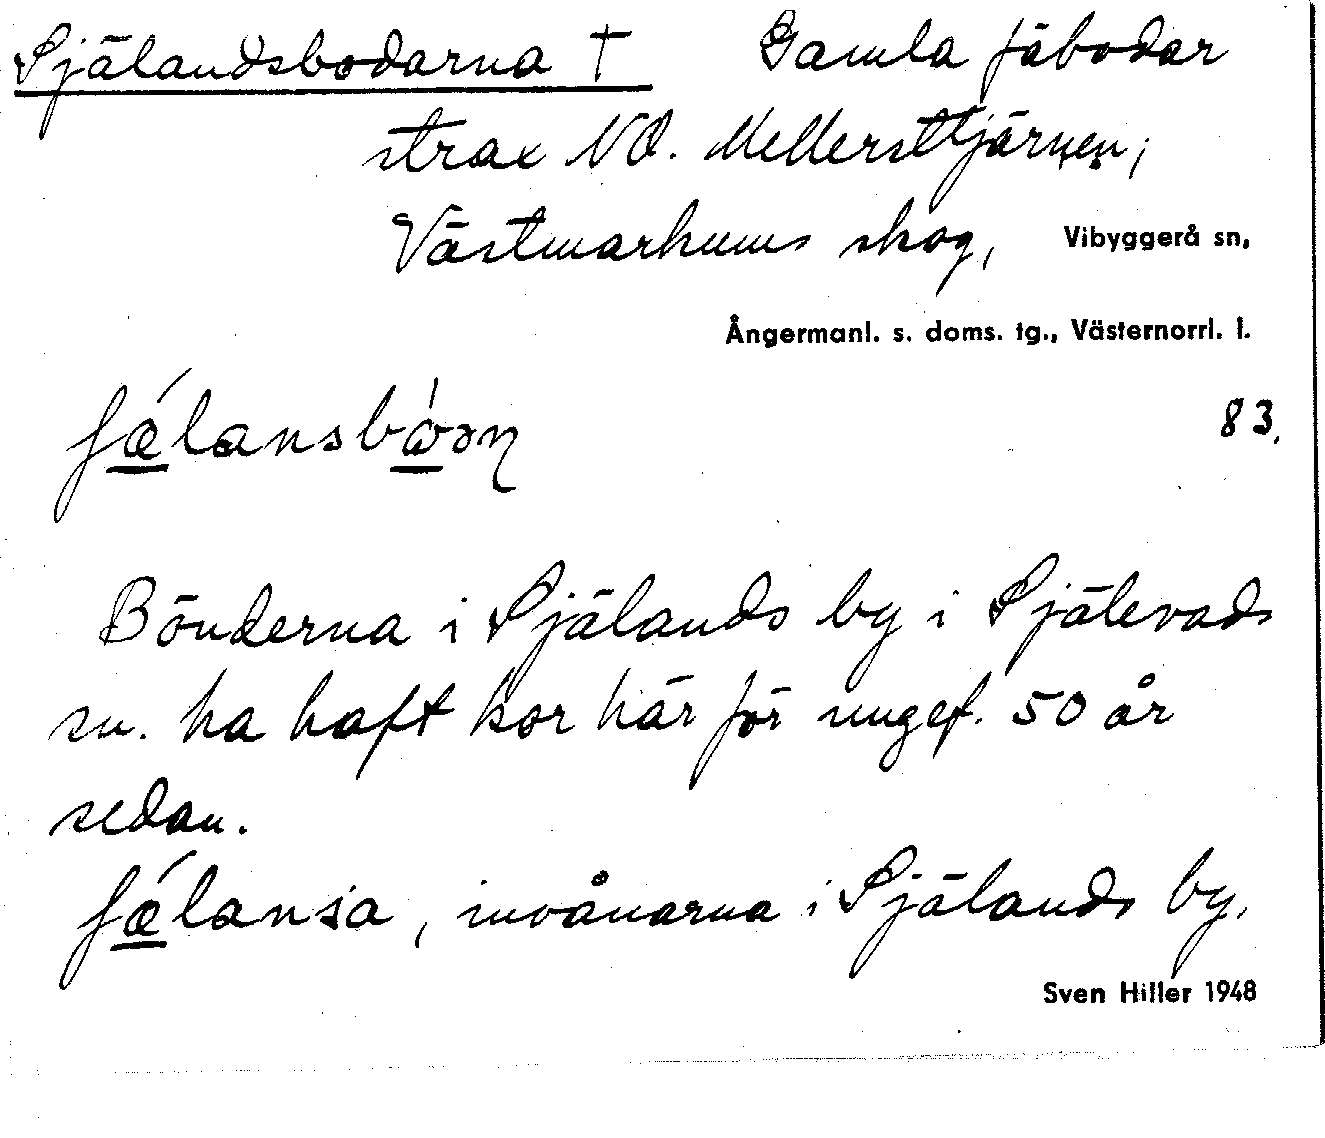 Själandsbodarna † Gamla fäbodar
strax NO. Mellersttjärnen,
Västmarkums skog, Vibyggerå sn,
Ångermanl. s. doms. tg., Västernorrl. l.
83.
Bönderna i Själands by i Själevads
sn. ha haft kor här för ungef. 50 år
sedan.
invånarna i Själands by.
Sven Hiller 1948